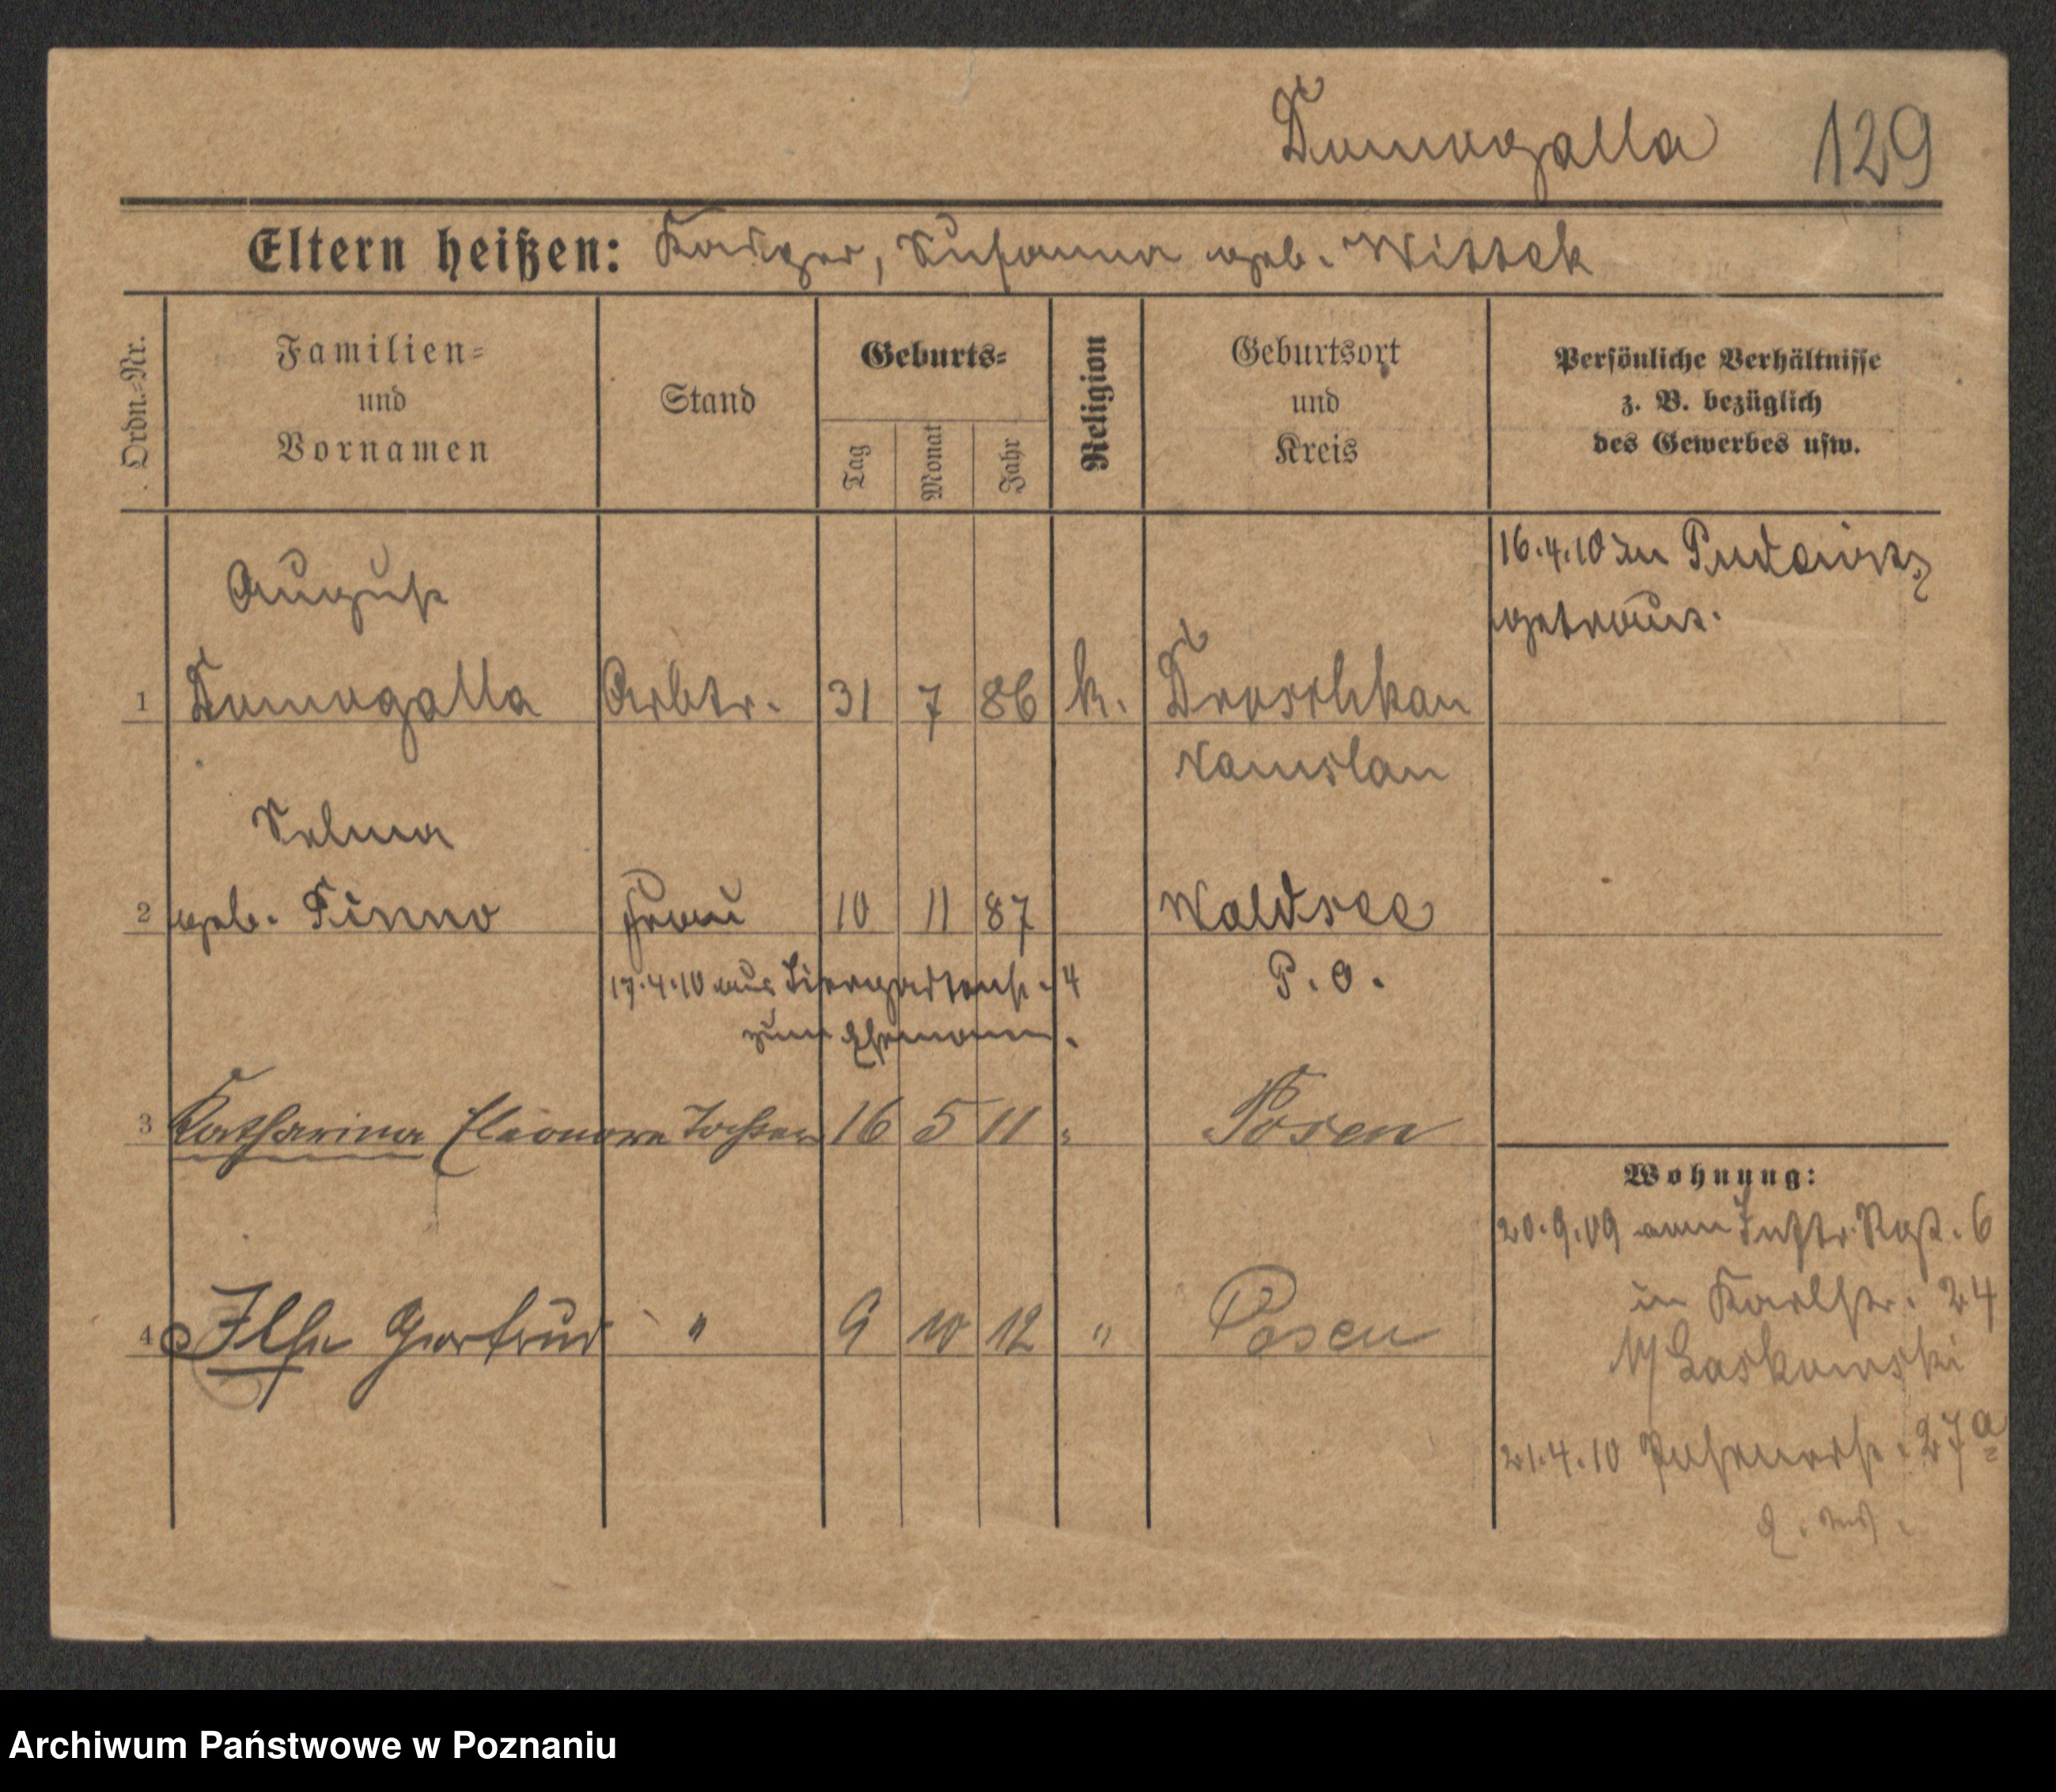 Domogalla 129
Eltern heißen: Kaspar, Susanna geb. Wittek
Ordn.-Nr.
Familien-
und
Vornamen
Stand
Geburts-
Tag
Monat
Jahr
Religion
Geburtsort
und
Kreis
Persönliche Verhältnisse
z. B. bezüglich
des Gewerbes usw.
16.4.10 in Pudewitz
getraut.
August
1 Domogalla Arbtr. 31 7 86 k. Droschkau
Namslau
Selma
2 geb. Finno Frau 10 11 87 Waldsee
P. O.
17.4.10 aus Tiergartenstr. 4
zum Ehemann.
3 Katharina Eleonore Tochter 16 5 11 " Posen
4 Ilse Gertrud " 9 10 12 " Posen
Wohnung:
20.9.09 6
in Karlstr. 24
b/ Laskowski
21.4.10 Posenerstr. 27a
Archiwum Państwowe w Poznaniu